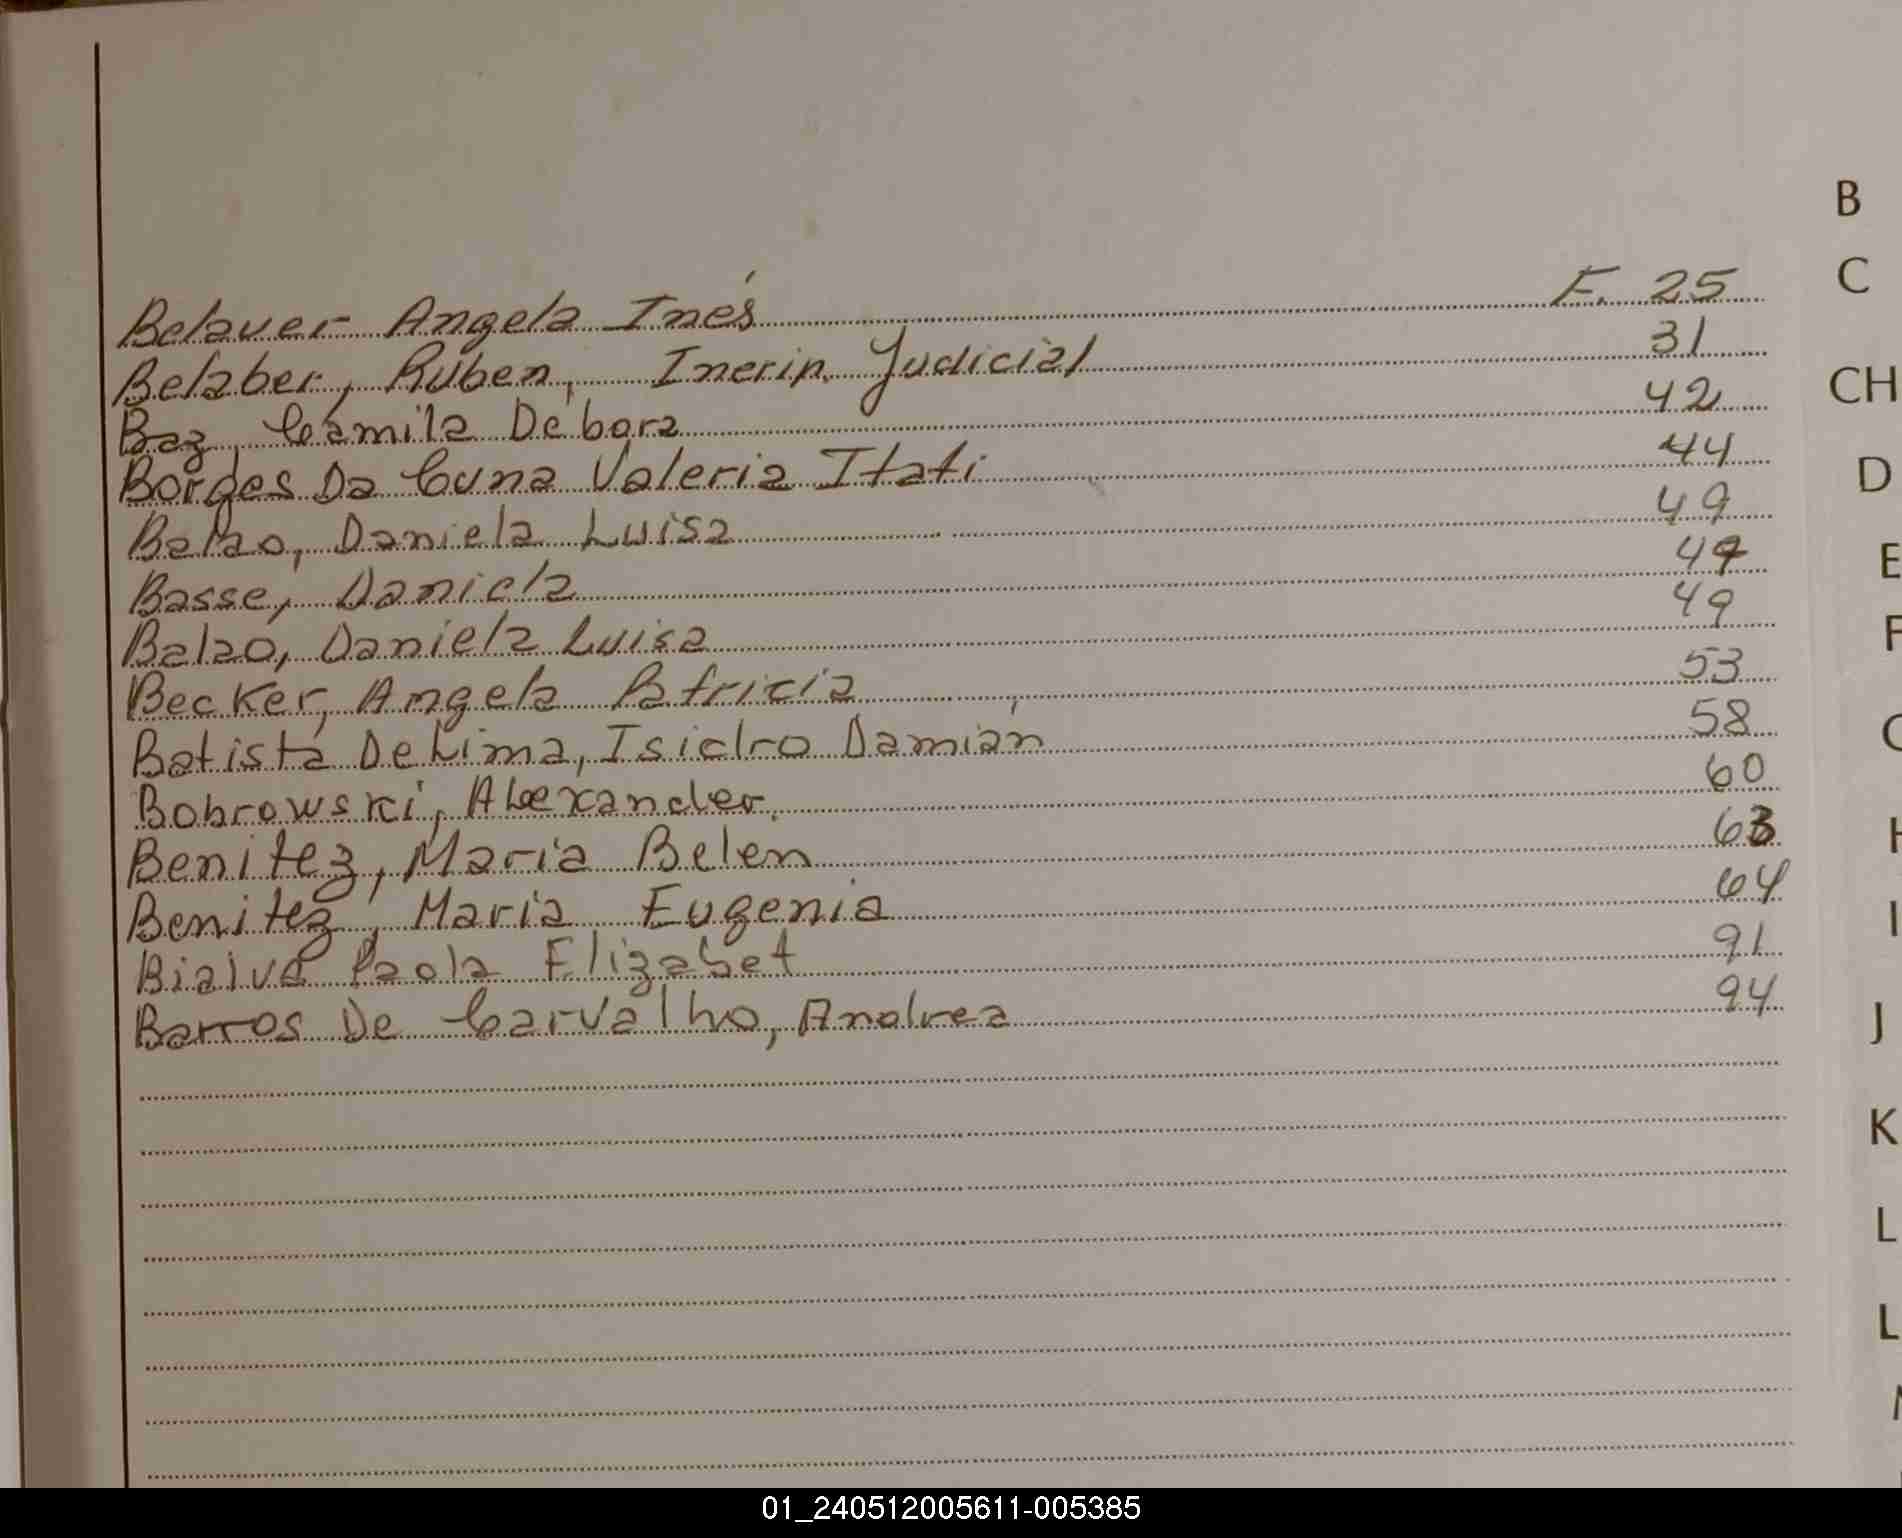 Belaver Angela Inés F. 25
Belaber, Ruben, Inerip. Judicial 31
Baz, Camila Débora 42
Borges Da Cuna Valeria Itati 44
Balao, Daniela Luisa 49
Basse, Daniela 49
Balao, Daniela Luisa 49
Becker, Angela Patricia 53
Batista De Lima, Isidro Damián 58
Bobrowski, Alexander. 60
Benitez, Maria Belen 63
Benitez, Maria Eugenia 64
Bialve Paola Elizabet 91
Barros De Carvalho, Andrea 94
B
C
CH
D
E
F
H
I
J
K
L
L
01_240512005611-005385